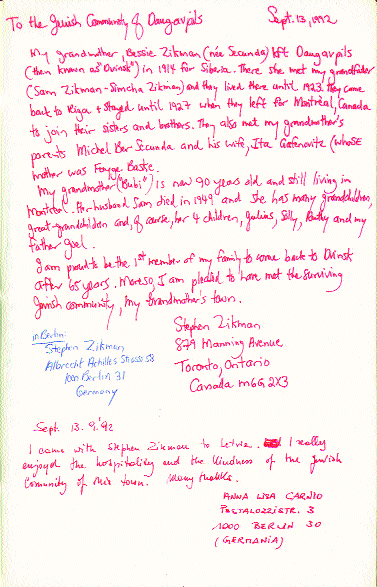 To the Jewish Community of Daugavpils
Sept. 13, 1992
My grandmother, Bessie Zikman (née Secunda) left Daugavpils
(then known as "Dvinsk") in 1914 for Siberia. There she met my grandfather
(Sam Zikman - Simcha Zikman) and they lived there until 1923. They came
back to Riga & stayed until 1927 when they left for Montréal, Canada
to join their sisters and brothers. They also met my grandmother's
parents Michel Ber Secunda and his wife, Ita (whose
mother was Feyge Baske.
My grandmother ("Bubi") is now 90 years old and still living in
Montreal. Her husband Sam died in 1949 and she has many grandchildren,
great-grandchildren and, of course, her 4 children, Julius, Silly, and my
father Joel.
I am proud to be the 1st member of my family to come back to Dvinsk
after 65 years. Moreso, I am pleased to have met the surviving
Jewish community, my grandmother's town.
Stephen Zikman
879 Manning Avenue
Toronto, Ontario
Canada M6G 2X3
in Berlin:
Stephen Zikman
Albrecht Achilles Strasse 58
1000 Berlin 31
Germany
Sept. 13. 9. '92
I came with Stephen Zikman to Latvia. I really
enjoyed the hospitality and the kindness of the Jewish
Comunity of this town. Many thanks.
ANNA LISA CARNIO
PESTALOZZISTR. 3
1000 BERLIN 30
(GERMANIA)